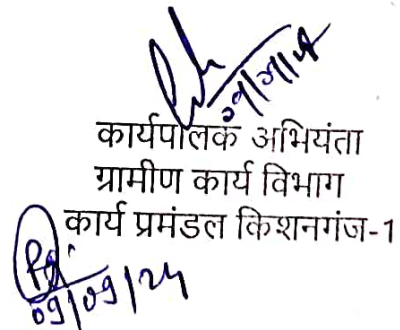 09/09/24
कार्यपालक अभियंता
ग्रामीण कार्य विभाग
कार्य प्रमंडल किशनगंज-1
09/09/24